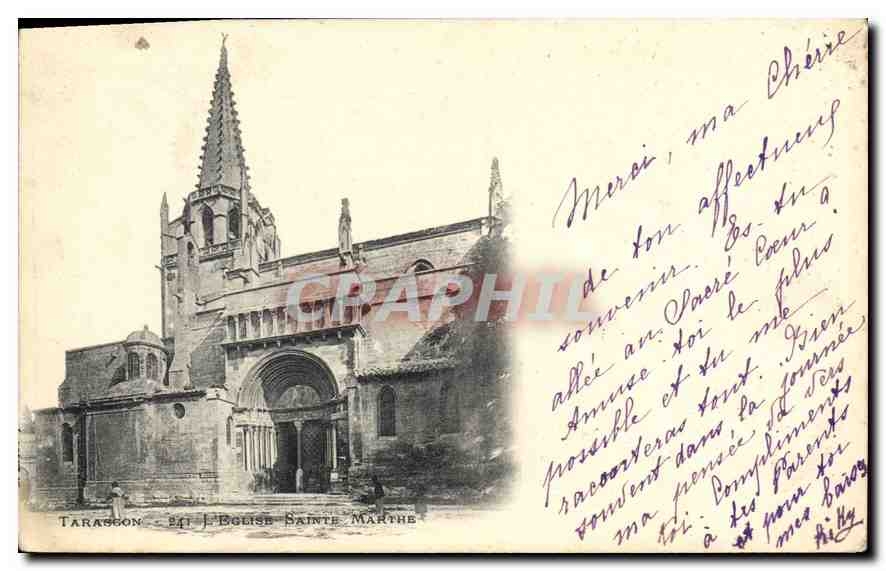 Merci, ma Chérie
de ton affectueux
souvenir. Es-tu
allée au Sacré Cœur à
Amuse toi le plus
possible et tu me
raconteras tout. Bien
souvent dans la journée
ma pensée va vers
toi. Compliments
à tes Parents
et pour toi
mes baisers
CRAPHIL
TARASCON - 241 L'EGLISE SAINTE MARTHE